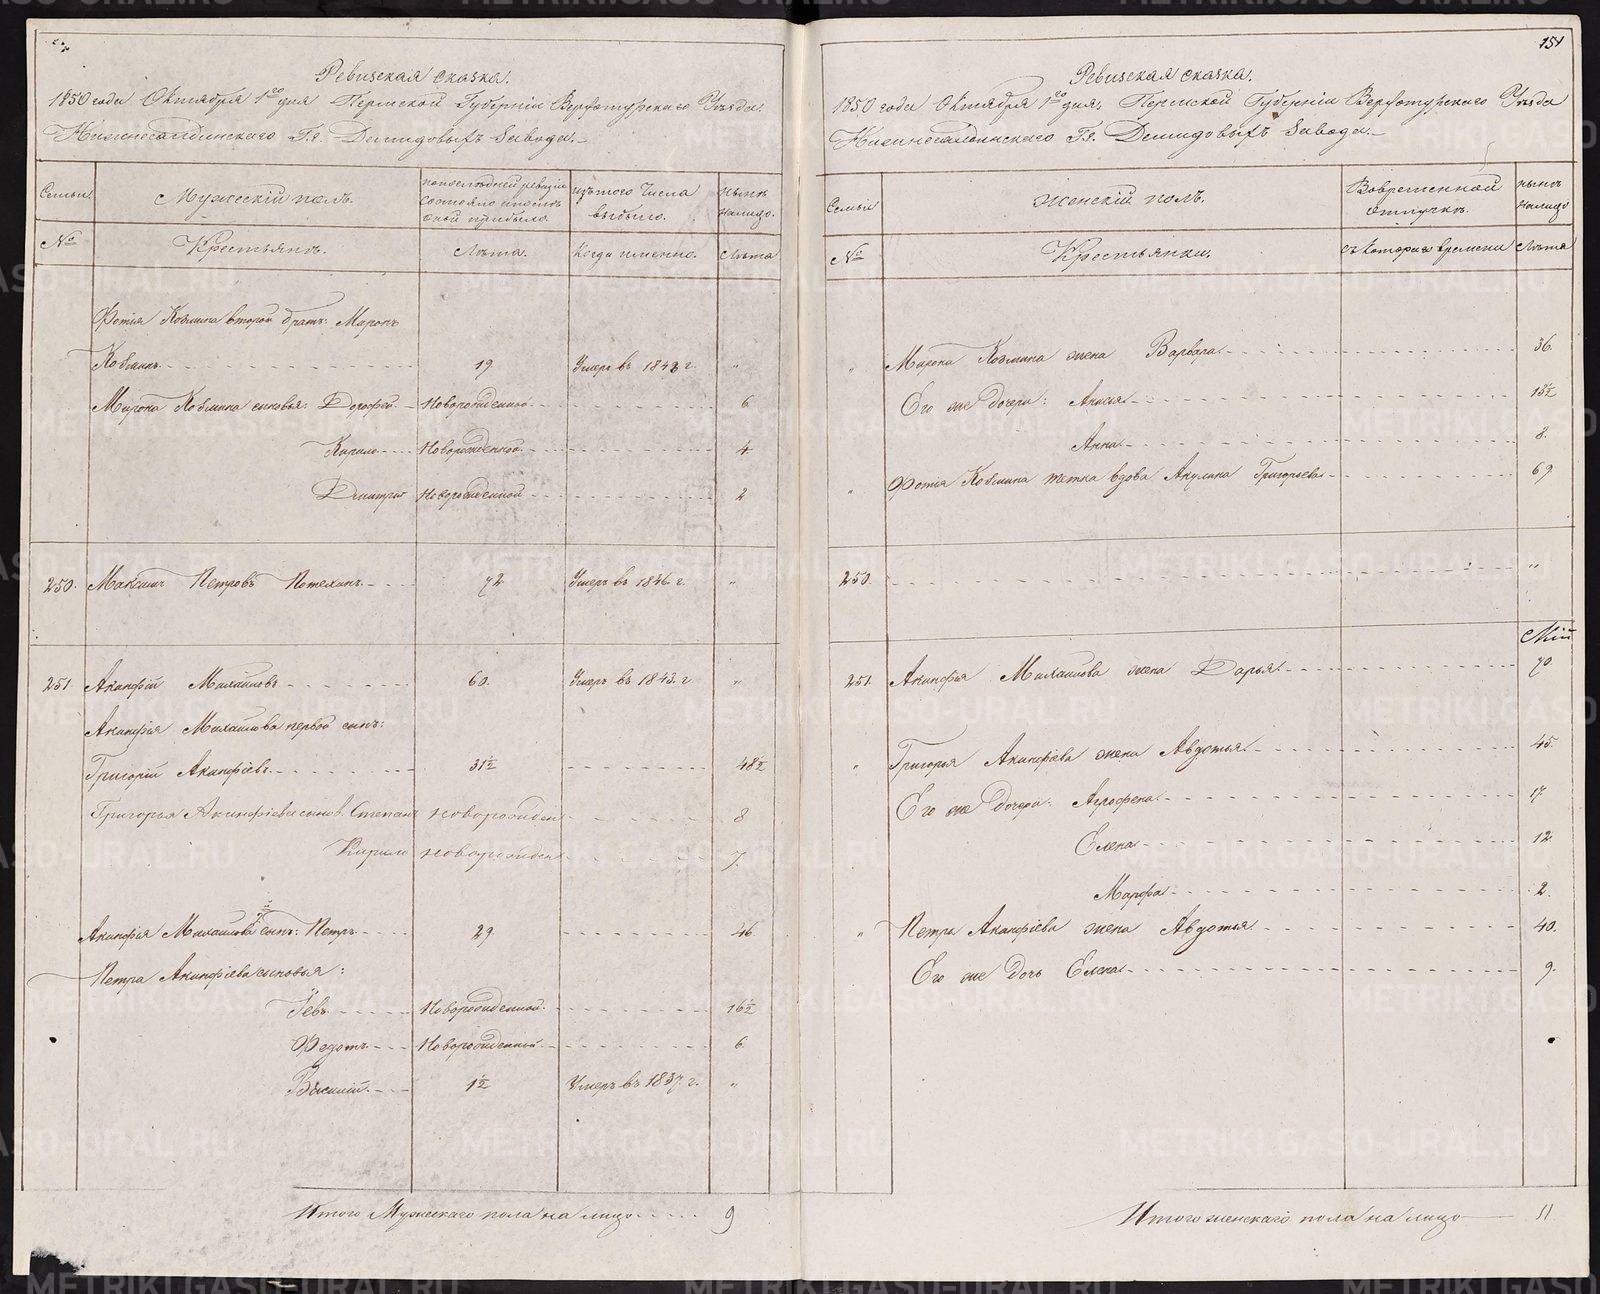 Ревизская сказка.
1850 года Октября 1го дня Пермской Губерніи Верхотурскаго Уѣзда.
Нижнесалдинскаго Г.г. Демидовыхъ Завода.
Семьи Мужескій полъ. По последней ревизіи состояло и после оной прибыло. Изъ того Числа выбыло. Нынѣ на лицо.
№ Крестьянъ. Лѣта. Когда именно. Лѣта
Фотія Козмина второй братъ: Миронъ
Козминъ 19 Умеръ въ 1843 г. "
Мирона Козмина сыновья: Дорофей Новорожденной 6
Кирило Новорожденной 4
Дмитрій Новорожденной 2
250. Максимъ Петровъ Потехинъ 72 Умеръ въ 1846 г. "
251 Акинфій Михайловъ 60. Умеръ въ 1843. г "
Акинфія Михайлова первой сынъ:
Григорій Акинфіевъ 31½ 48½
Григорья Акинфіева сынов. Степанъ новорожден 8
Кирило новорожден 7.
Акинфія Михайлова 2й сынъ: Петръ 29 46
Петра Акинфіева сыновья:
Іевъ Новорожденной 16½
Федотъ Новорожденной 6
Василій 1½ Умеръ въ 1837. г. "
Итого Мужескаго пола на лицо 9
151
Ревизская сказка.
1850 года Октября 1го дня, Пермской Губерніи Верхотурскаго Уѣзда
Нижнесалдинскаго Г.г. Демидовыхъ Завода.
Семьи Женскій полъ. Во временной отлучкѣ. Нынѣ на лицо
№ Крестьянки. Съ котораго времени Лѣта
" Мирона Козмина жена Варвара 36.
Его же дочери: Анисья 13½
Анна 8.
" Фотія Козмина тетка вдова Акулина Григорьева 69
250. "
251. Акинфія Михайлова жена Дарья 70.
" Григорья Акинфіева жена Авдотья 45.
Его же дочери: Агрофена 17.
Елена 12.
Марфа 2.
" Петра Акинфіева жена Авдотья 40.
Его же дочь Елена 9.
Итого женскаго пола на лицо 11
METRIKI.GASO-URAL.RU